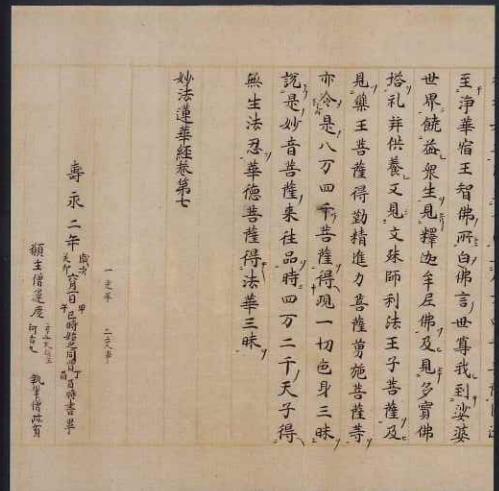 至淨華宿王智佛所白佛言世尊我到娑婆
世界饒益衆生見釋迦牟尼佛及見多寶佛
塔礼拜供養又見文殊師利法王子菩薩及
見藥王菩薩得勤精進力菩薩勇施菩薩等
亦令是八万四千菩薩得現一切色身三昧
說是妙音菩薩来往品時四万二千天子得
無生法忍華德菩薩得法華三昧
妙法蓮華經卷第七
一交畢 二交畢
壽永二年歲次癸卯六月 日甲午巳時始之同月 日丁酉酉時書畢
願主僧運慶 執筆僧珎賀